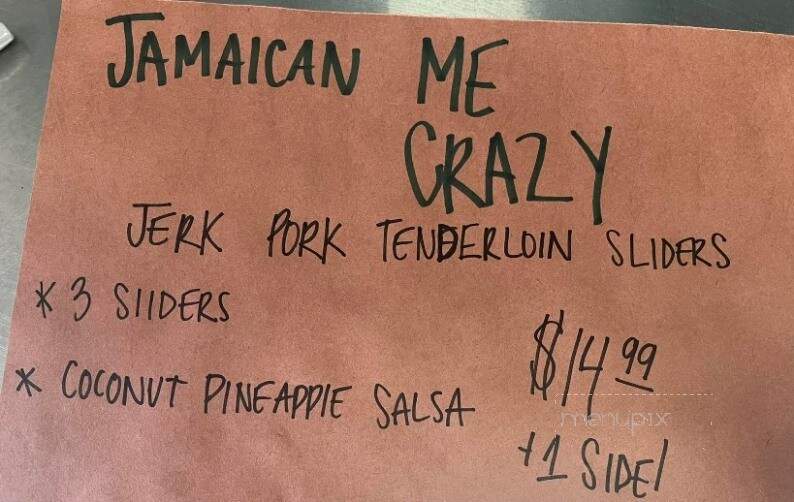 JAMAICAN ME
CRAZY
JERK PORK TENDERLOIN SLIDERS
* 3 SlIDERS
* COCONUT PINEAPPlE SALSA
$14.99
menupix
+1 SIDE!